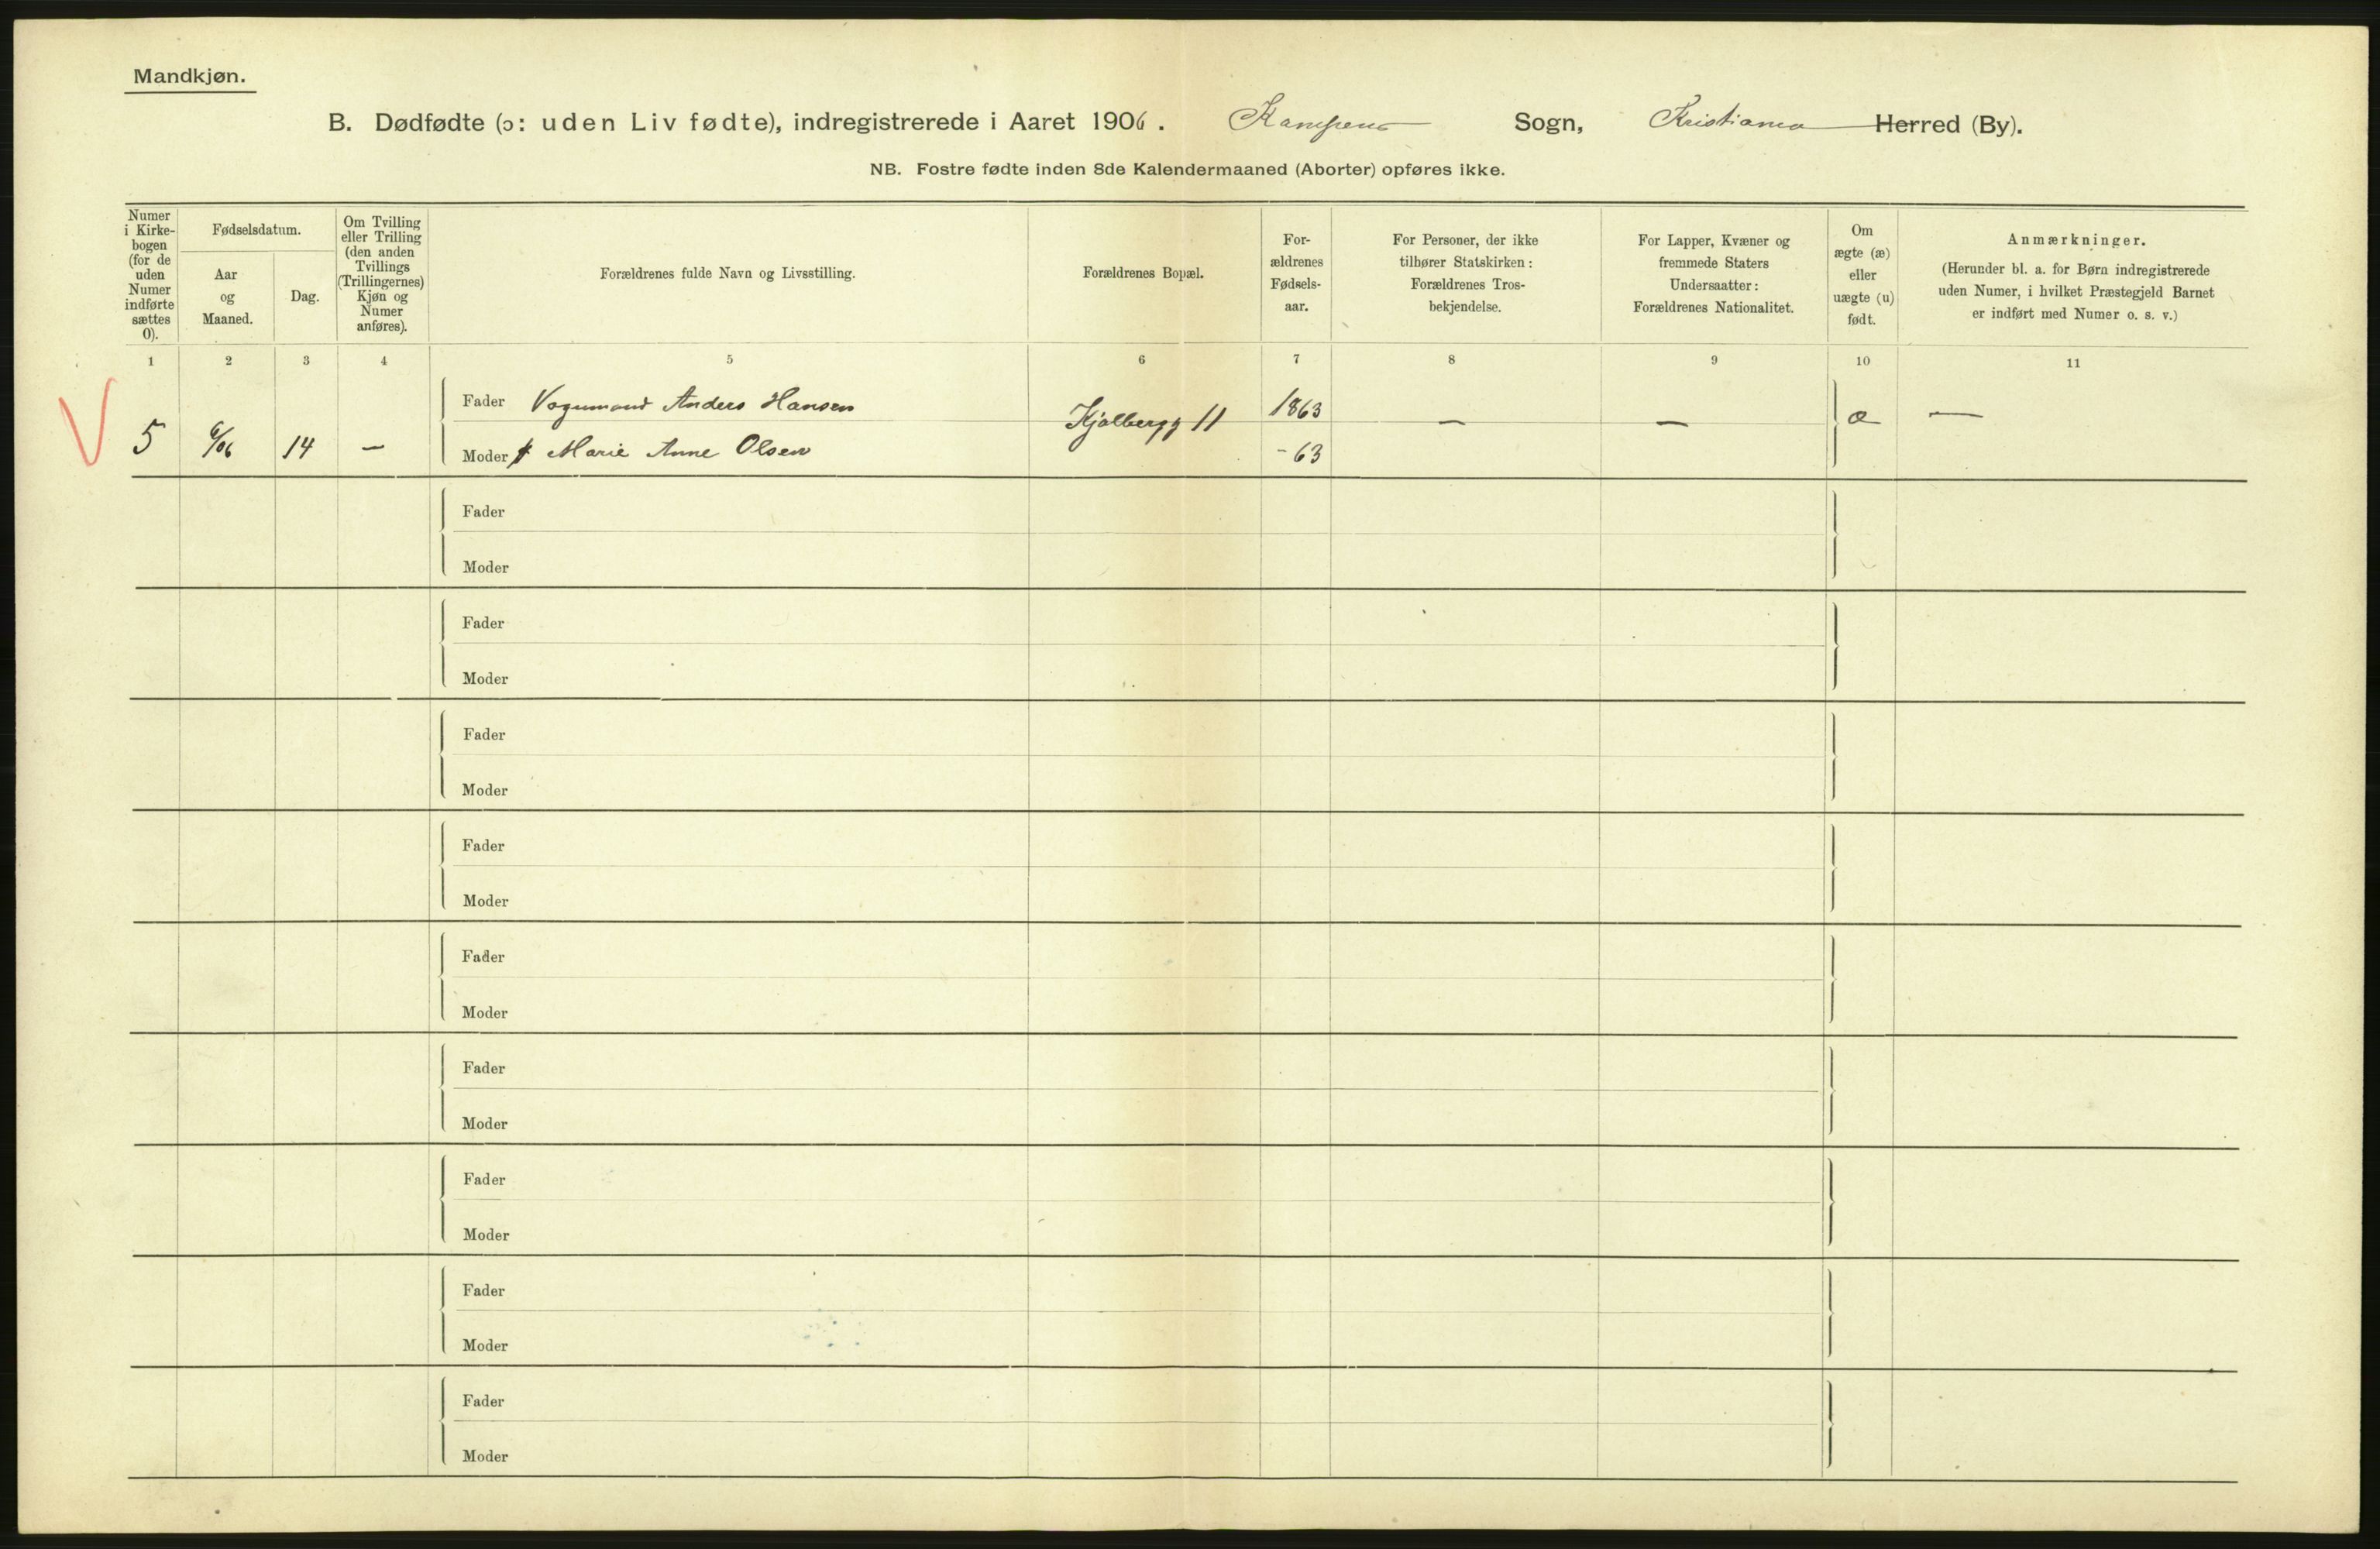 Mandkjøn.
B. Dødfødte (ɔ: uden Liv fødte), indregistrerede i Aaret 1906. Kampens Sogn, Kristiania Herred (By).
NB. Fostre fødte inden 8de Kalendermaaned (Aborter) opføres ikke.
Numer i Kirke-bogen (for de uden Numer indførte sættes 0).
Fødselsdatum.
Aar og Maaned.
Dag.
Om Tvilling eller Trilling (den anden Tvillings (Trillingernes) Kjøn og Numer anføres).
Forældrenes fulde Navn og Livsstilling.
Forældrenes Bopæl.
For-ældrenes Fødsels-aar.
For Personer, der ikke tilhører Statskirken: Forældrenes Tros-bekjendelse.
For Lapper, Kvæner og fremmede Staters Undersaatter: Forældrenes Nationalitet.
Om ægte (æ) eller uægte (u) født.
Anmærkninger.
(Herunder bl. a. for Børn indregistrerede uden Numer, i hvilket Præstegjeld Barnet er indført med Numer o. s. v.)
1 2 3 4 5 6 7 8 9 10 11
V
Fader Vognmand Anders Hansen Kjølbergg 11 1863 — — æ —
5 6/06 14 — Moder Marie Anne Olsen - 63
Fader
Moder
Fader
Moder
Fader
Moder
Fader
Moder
Fader
Moder
Fader
Moder
Fader
Moder
Fader
Moder
Fader
Moder